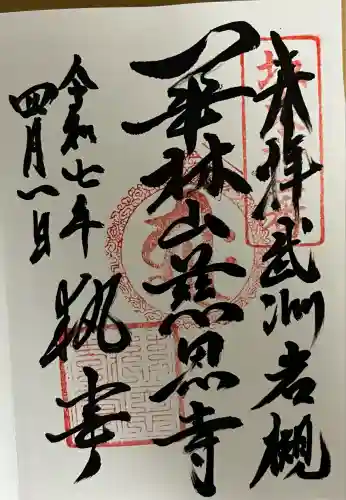 来拝武州岩槻
華林山慈恩寺
令和七年
四月八日
執事